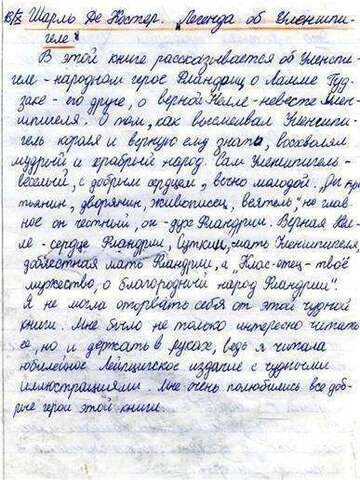 Шарль Де Костер. „Легенда об Уленшпи-
геле"
В этой книге рассказывается об Уленшпи-
геле - народном герое Фландрии, о Ламме Гуд-
заке - его друге, о верной Нелле - невесте Улен-
шпигеля. О том, как высмеивал Уленшпи-
гель короля и верную ему знать, восхвалял
мудрый и храбрый народ. Сам Уленшпигель -
весёлый, с добрым сердцем, вечно молодой. „Он кре
тьянин, дворянин, живописец, ваятель", не глав-
ное он честный, он - дух Фландрии. Верная Нел-
ле - сердце Фландрии, Суткин, мать Уленшпигеля,
доблестная мать Фландрии, а „Клас - отец - твоё
мужество, о благородный народ Фландрии".
Я не могла оторвать себя от этой чудной
книги. Мне было не только интересно читать
её, но и держать в руках, ведь я читала
юбилейное Лейпцигское издание с чудными
иллюстрациями. Мне очень полюбились все доб-
рые герои этой книги.